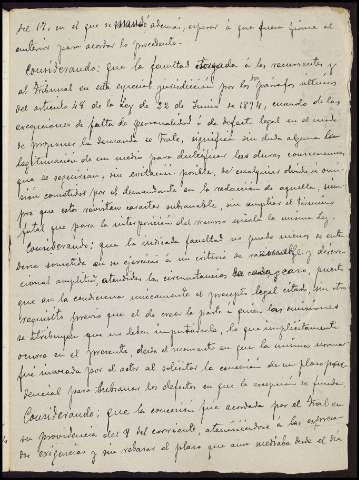 del 17, en el que se mandó además, esperar á que fuera firme el
anterior para acordar lo procedente.
Considerando: que la facultad otorgada á los recurrentes y
al Tribunal en esta especial jurisdicción por los párrafos últimos
del artículo 48 de la Ley de 22 de Junio de 1894, cuando de las
excepciones de falta de personalidad ó de defecto legal en el modo
de proponer la demanda se trate, significa sin duda alguna la
legitimación de un medio para dentro de las dos
que se requieran, sin evitación posible, de cualquier duda ú omi-
sión cometidos por el demandante en la redacción de aquella, siem-
pre que estos revistan caracter subsanable, sin ampliar el término
fatal que para la interposición del recurso señala la misma Ley.
Considerando: que la indicada facultad no puede menos de enten-
derse sometida en su ejercicio á un criterio de racional y discre-
cional amplitud, atendidas las circunstancias de cada caso, puesto
que no la condiciona únicamente el precepto legal citado, sin otro
requisito previo que el de creer la parte á quien las omisiones
se atribuyen que no deben imputársele, lo que implícitamente
ocurre en el presente desde el momento en que la misma norma
fué invocada por el actor al solicitar la concesión de un plazo pru-
dencial para subsanar los defectos en que la excepción se funda.
Considerando: que la concesión fue acordada por el Tribunal en
su providencia del 9 del corriente, ateniéndose á las expresa-
das exigencias y sin rebasar el plazo que aun mediaba desde el día